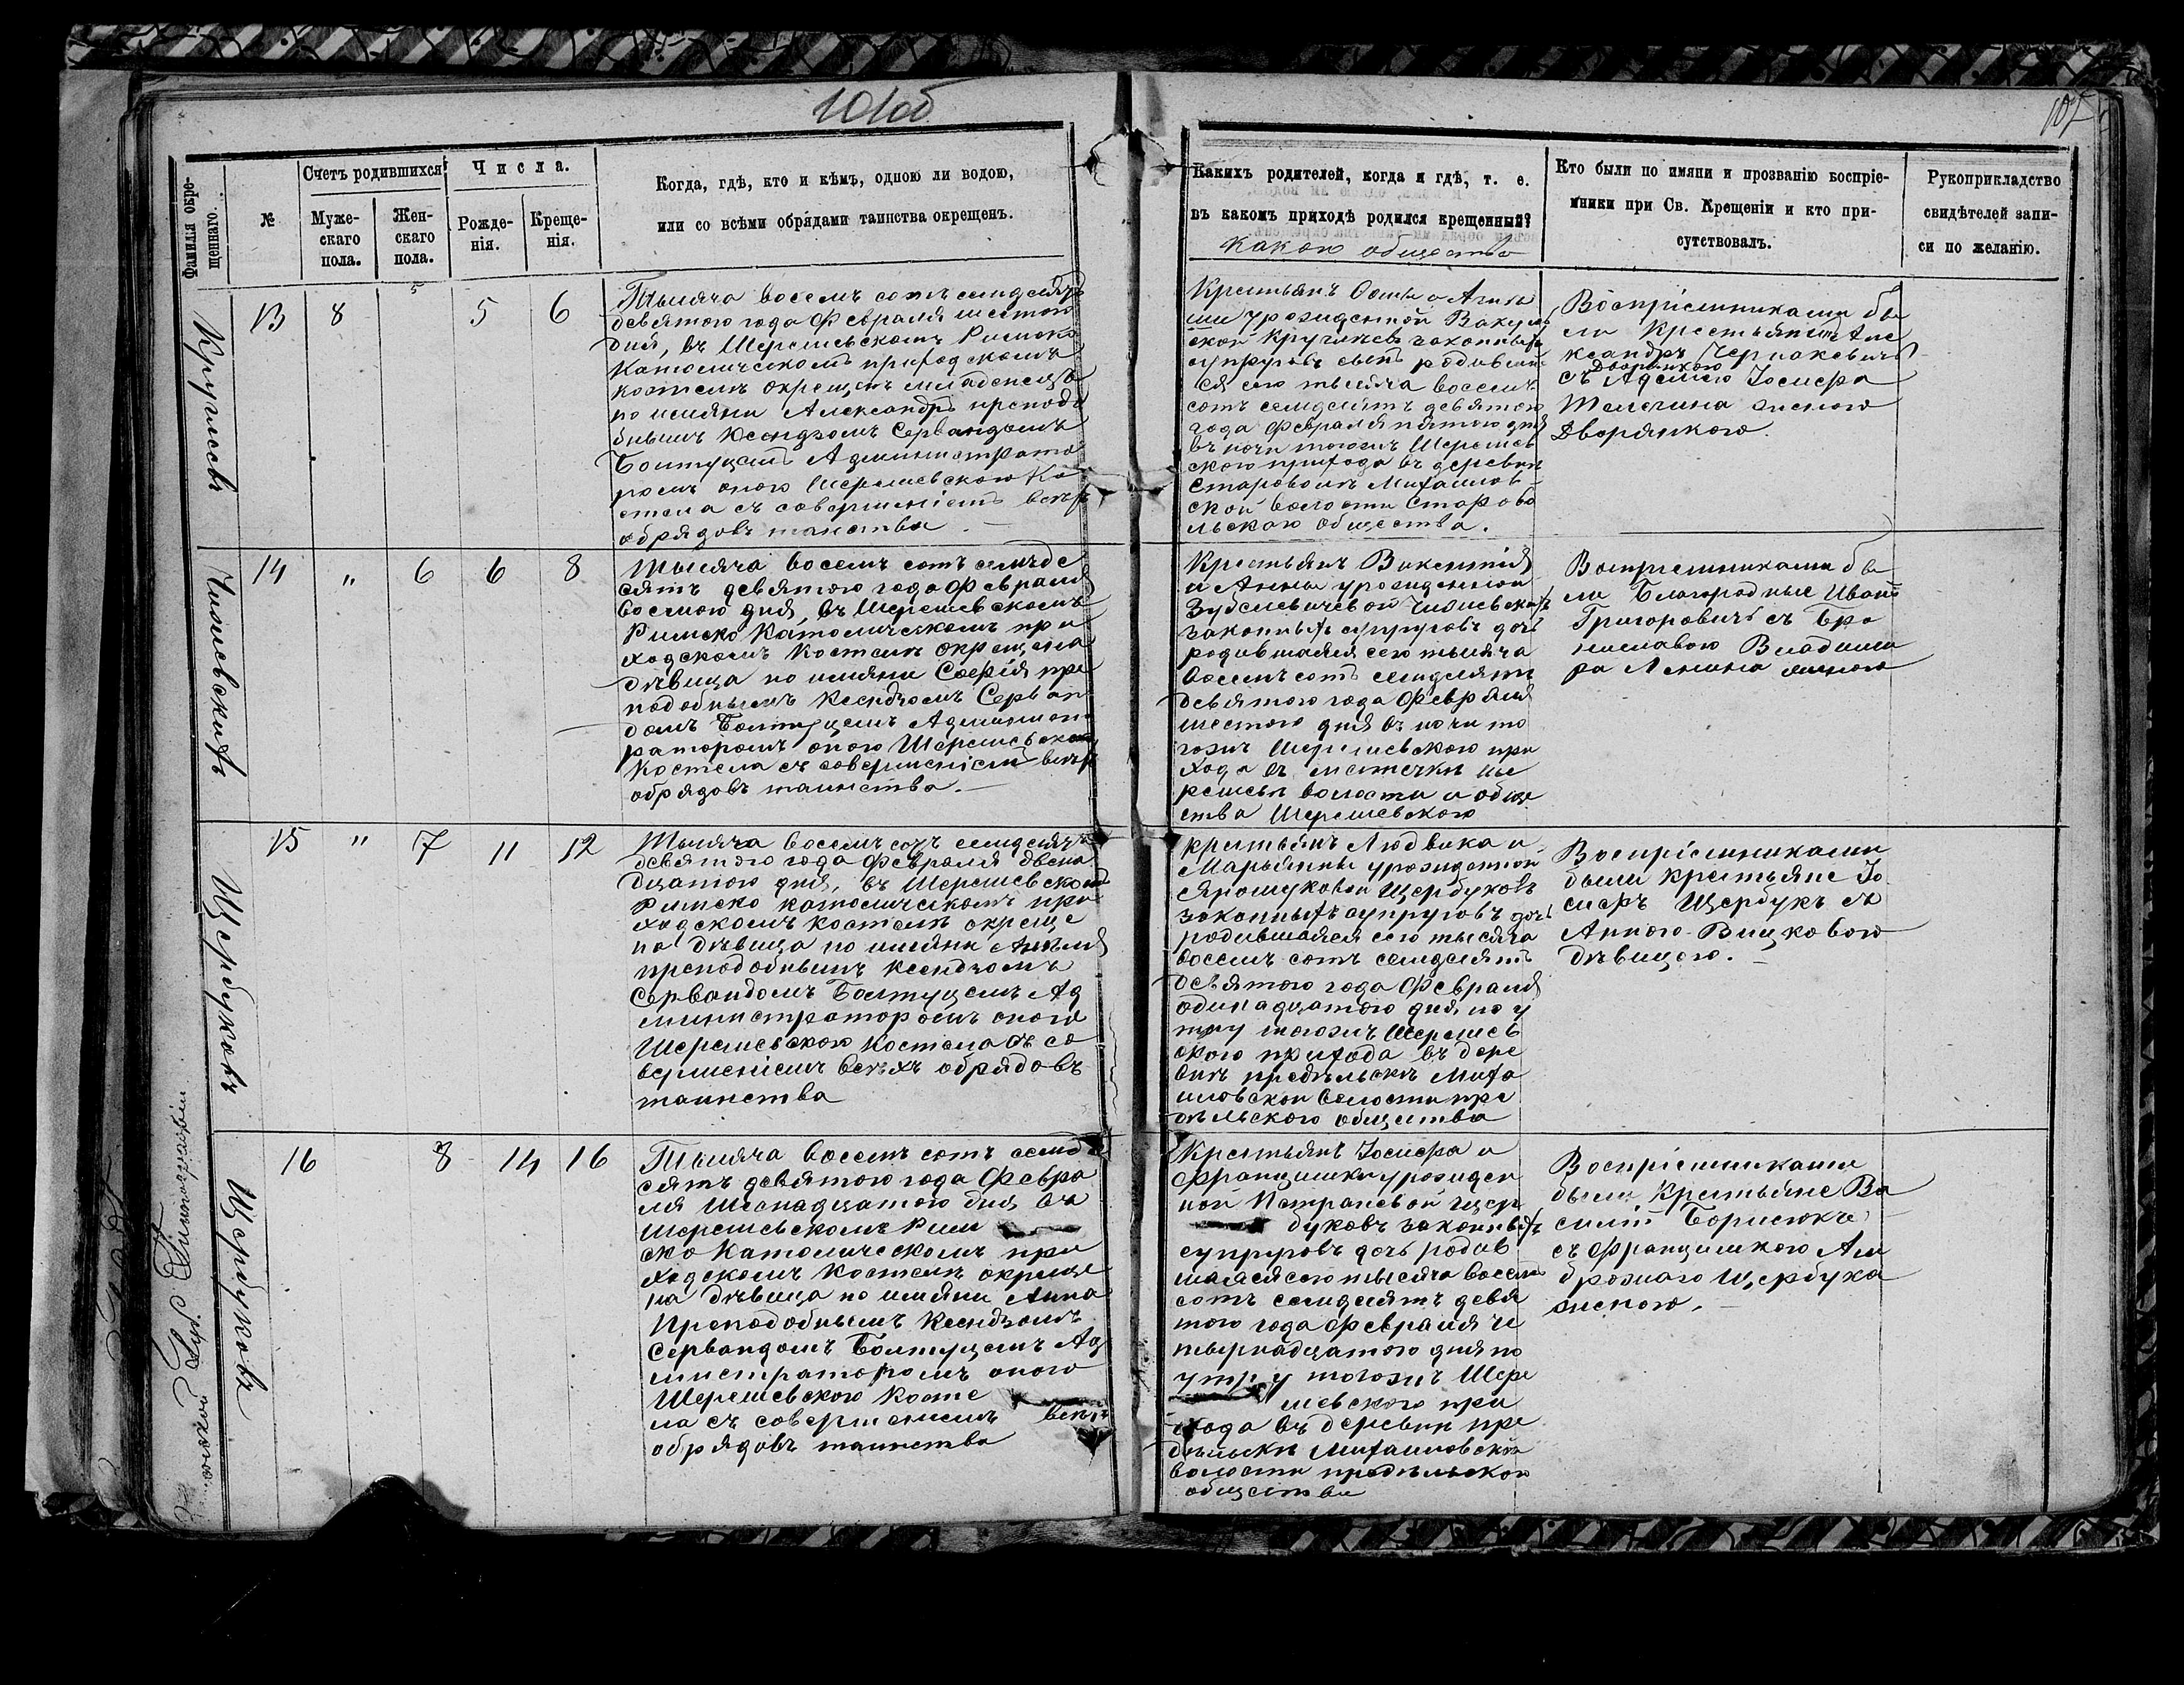 101об
102
Фамилія окрещеннаго.
№
Счетъ родившихся
Мужескаго пола.
Женскаго пола.
Числа.
Рожденія.
Крещенія.
Когда, гдѣ, кто и кѣмъ, одною ли водою,
или со всѣми обрядами таинства окрещенъ.
Какихъ родителей, когда и гдѣ, т. е.
въ какомъ приходѣ родился крещенный?
какого общества
Кто были по имяни и прозванію воспріе-
мники при Св. Крещеніи и кто при-
сутствовалъ.
Рукоприкладство
свидѣтелей запи-
си по желанію.
13 8 5 6
Тысяча восемъ сотъ семдесятъ
девятого года Февраля шестого
дня, въ Шерешевскомъ Римско
Католическомъ приходскомъ
костелѣ окрещенъ младенецъ
по имяни Александръ преподо
бнымъ Ксендзомъ Сервандомъ
Болтуцемъ Администрато
ромъ оного Шерешевского Ко
стела съ совершеніемъ всѣхъ
обрядовъ таинства. —
Крестьянъ
урожденной
законныхъ
супруговъ сынъ родивший
ся сего тысяча восемъ
сотъ семдесятъ девятого
года Февраля пятого дня
въ ночи тогожъ Шерешев
ского прихода въ деревни
Староволѣ Михайлов
ской волости Старово
льского общества.
Воспріемниками бы
ли Крестьянинъ Але
ксандръ Чернакевичъ
съ Аделею Іосифа
дворянкою
женою
Дворянкою.
14 " 6 6 8
Чижевскихъ
Тысяча восемъ сотъ семъде
сятъ девятого года Февраля
восмого дня, въ Шерешевскомъ
Римско Католическомъ при
ходскомъ Костелѣ окрещена
дѣвица по имяни Софія пре
подобнымъ Ксендзомъ Серван
домъ Болтуцемъ Админист
раторомъ оного Шерешевского
Костела съ совершеніемъ всѣхъ
обрядовъ таинства. —
Крестьянъ Викентія
и Анны урожденной
Чижевскихъ
законныхъ супруговъ дочь
родившаяся сего тысяча
восемъ сотъ семдесятъ
девятого года Февраля
шестого дня въ ночи то
гожъ Шерешевского при
хода въ мѣстечкѣ Ше
решевѣ волости и обще
ства Шерешевского
Воспріемниками бы
ли Благородные Иванъ
Григоровичъ съ Бро
ниславою Владими
ра женою
15 " 7 11 12
Щербуковъ
Тысяча восемъ сотъ семдесятъ
девятого года Февраля двена
дцатого дня, въ Шерешевскомъ
Римско католическомъ при
ходскомъ костелѣ окреще
на дѣвица по имяни Анеля
преподобнымъ ксендзомъ
Сервандомъ Болтуцемъ Ад
министраторомъ оного
Шерешевского Костела съ со
вершеніемъ всѣхъ обрядовъ
таинства
крестьянъ Людвика и
Марьянны урожденной
Ярошуковой Щербуковъ
законныхъ супруговъ дочь
родившаяся сего тысяча
восемъ сотъ семдесятъ
девятого года Февраля
одинадцатого дня по у
тру тогожъ Шерешев
ского прихода въ дере
внѣ предѣльскѣ Миха
йловской волости пре
дѣльского общества
Воспріемниками
были крестьяне Іо
сифъ Щербукъ съ
Анною
дѣвицею. —
16 8 14 16
Щербуковъ
Тысяча восемъ сотъ семде
сятъ девятого года Февра
ля Шеснадцатого дня въ
Шерешевскомъ Рим
ско Католическомъ при
ходскомъ Костелѣ окреще
на дѣвица по имяни Анна
Преподобнымъ Ксендзомъ
Сервандомъ Болтуцемъ Ад
министраторомъ оного
Шерешевского Косте
ла съ совершенiемъ всѣхъ
обрядовъ таинства
Крестьянъ Іосифа и
Францишки урожден
ной Петрапевой Щер
буковъ законныхъ
супруговъ дочь родив
шаяся сего тысяча восемъ
сотъ семидесятъ девя
того года Февраля че
тырнадцатого дня по
утру тогожъ Шере
шевского при
хода въ деревни пре
дѣльскѣ Михайловской
волости предѣльского
общества
Воспріемниками
были Крестьяне Ва
силій Борисюкъ
съ Францишкою Ам
брожаго Щербука
женою. —